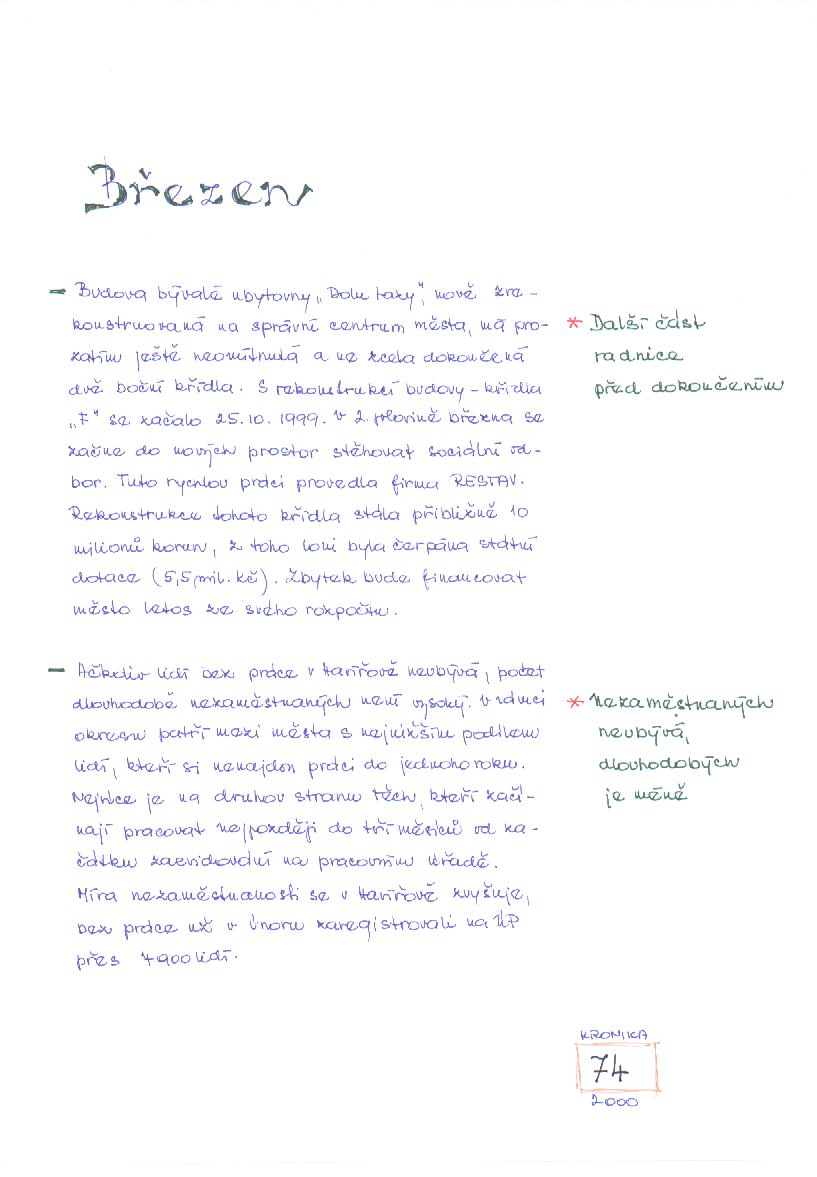 Březen
– Budova bývalé ubytovny „Dolu Lazy", nově zre-
konstruovaná na správní centrum města, má pro-
zatím ještě neomítnutá a ne zcela dokončená
dvě boční křídla. S rekonstrukcí budovy – křídla
„F" se začalo 25.10.1999. V 2. polovině března se
začne do nových prostor stěhovat sociální od-
bor. Tuto rychlou práci provedla firma RESTAV.
Rekonstrukce tohoto křídla stála přibližně 10
milionů korun, z toho loni byla čerpána státní
dotace (5,5 mil. kč). Zbytek bude financovat
město letos ze svého rozpočtu.
* Další část
radnice
před dokončením
– Ačkoliv lidí bez práce v Havířově neubývá, počet
dlouhodobě nezaměstnaných není vysoký. V rámci
okresu patří mezi města s nejnižším podílem
lidí, kteří si nenajdou práci do jednoho roku.
Nejvíce je na druhou stranu těch, kteří začí-
nají pracovat nejpozději do tří měsíců od za-
čátku zaevidování na pracovním úřadě.
Míra nezaměstnanosti se v Havířově zvyšuje,
bez práce už v únoru zaregistrovali na ÚP
přes 7900 lidí.
* Nezaměstnaných
neubývá,
dlouhodobých
je méně
KRONIKA
74
2000